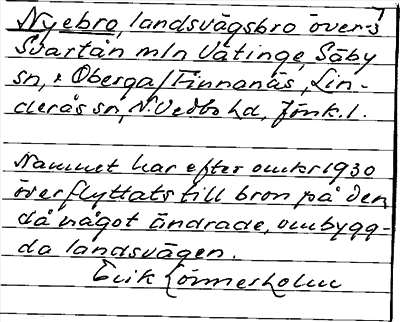 Nyebro, landsvägsbro över
Svartån mln Vätinge, Säby
sn, & Öberga/Finnanäs, Lin-
derås sn, N. Vedbo hd, Jönk. l.
Namnet har efter omkr 1930
överflyttats till bron på den
då något ändrade, ombygg-
da landsvägen.
Erik Lönnerholm